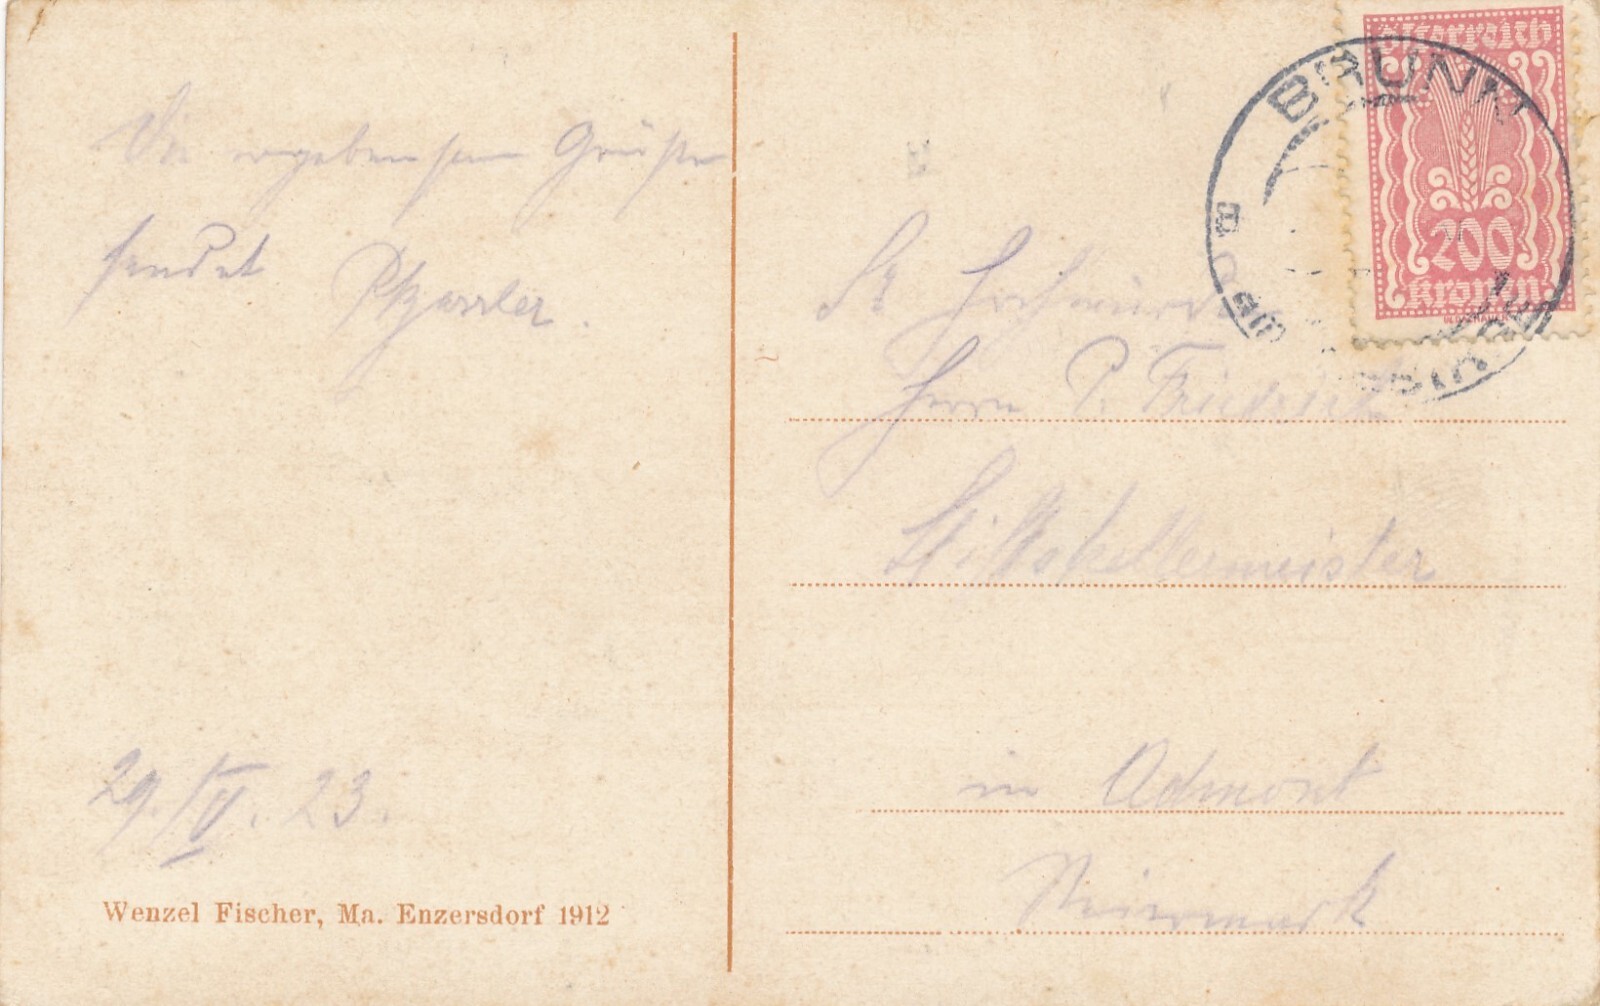 Die ergebensten Grüße
sendet
29./V. 23.
Wenzel Fischer, Ma. Enzersdorf 1912
Österreich
200
Kronen
BRUNN
Sr Hochwürden
Herrn P. Friedrich
Stiftskellermeister
in Admont
Steiermark